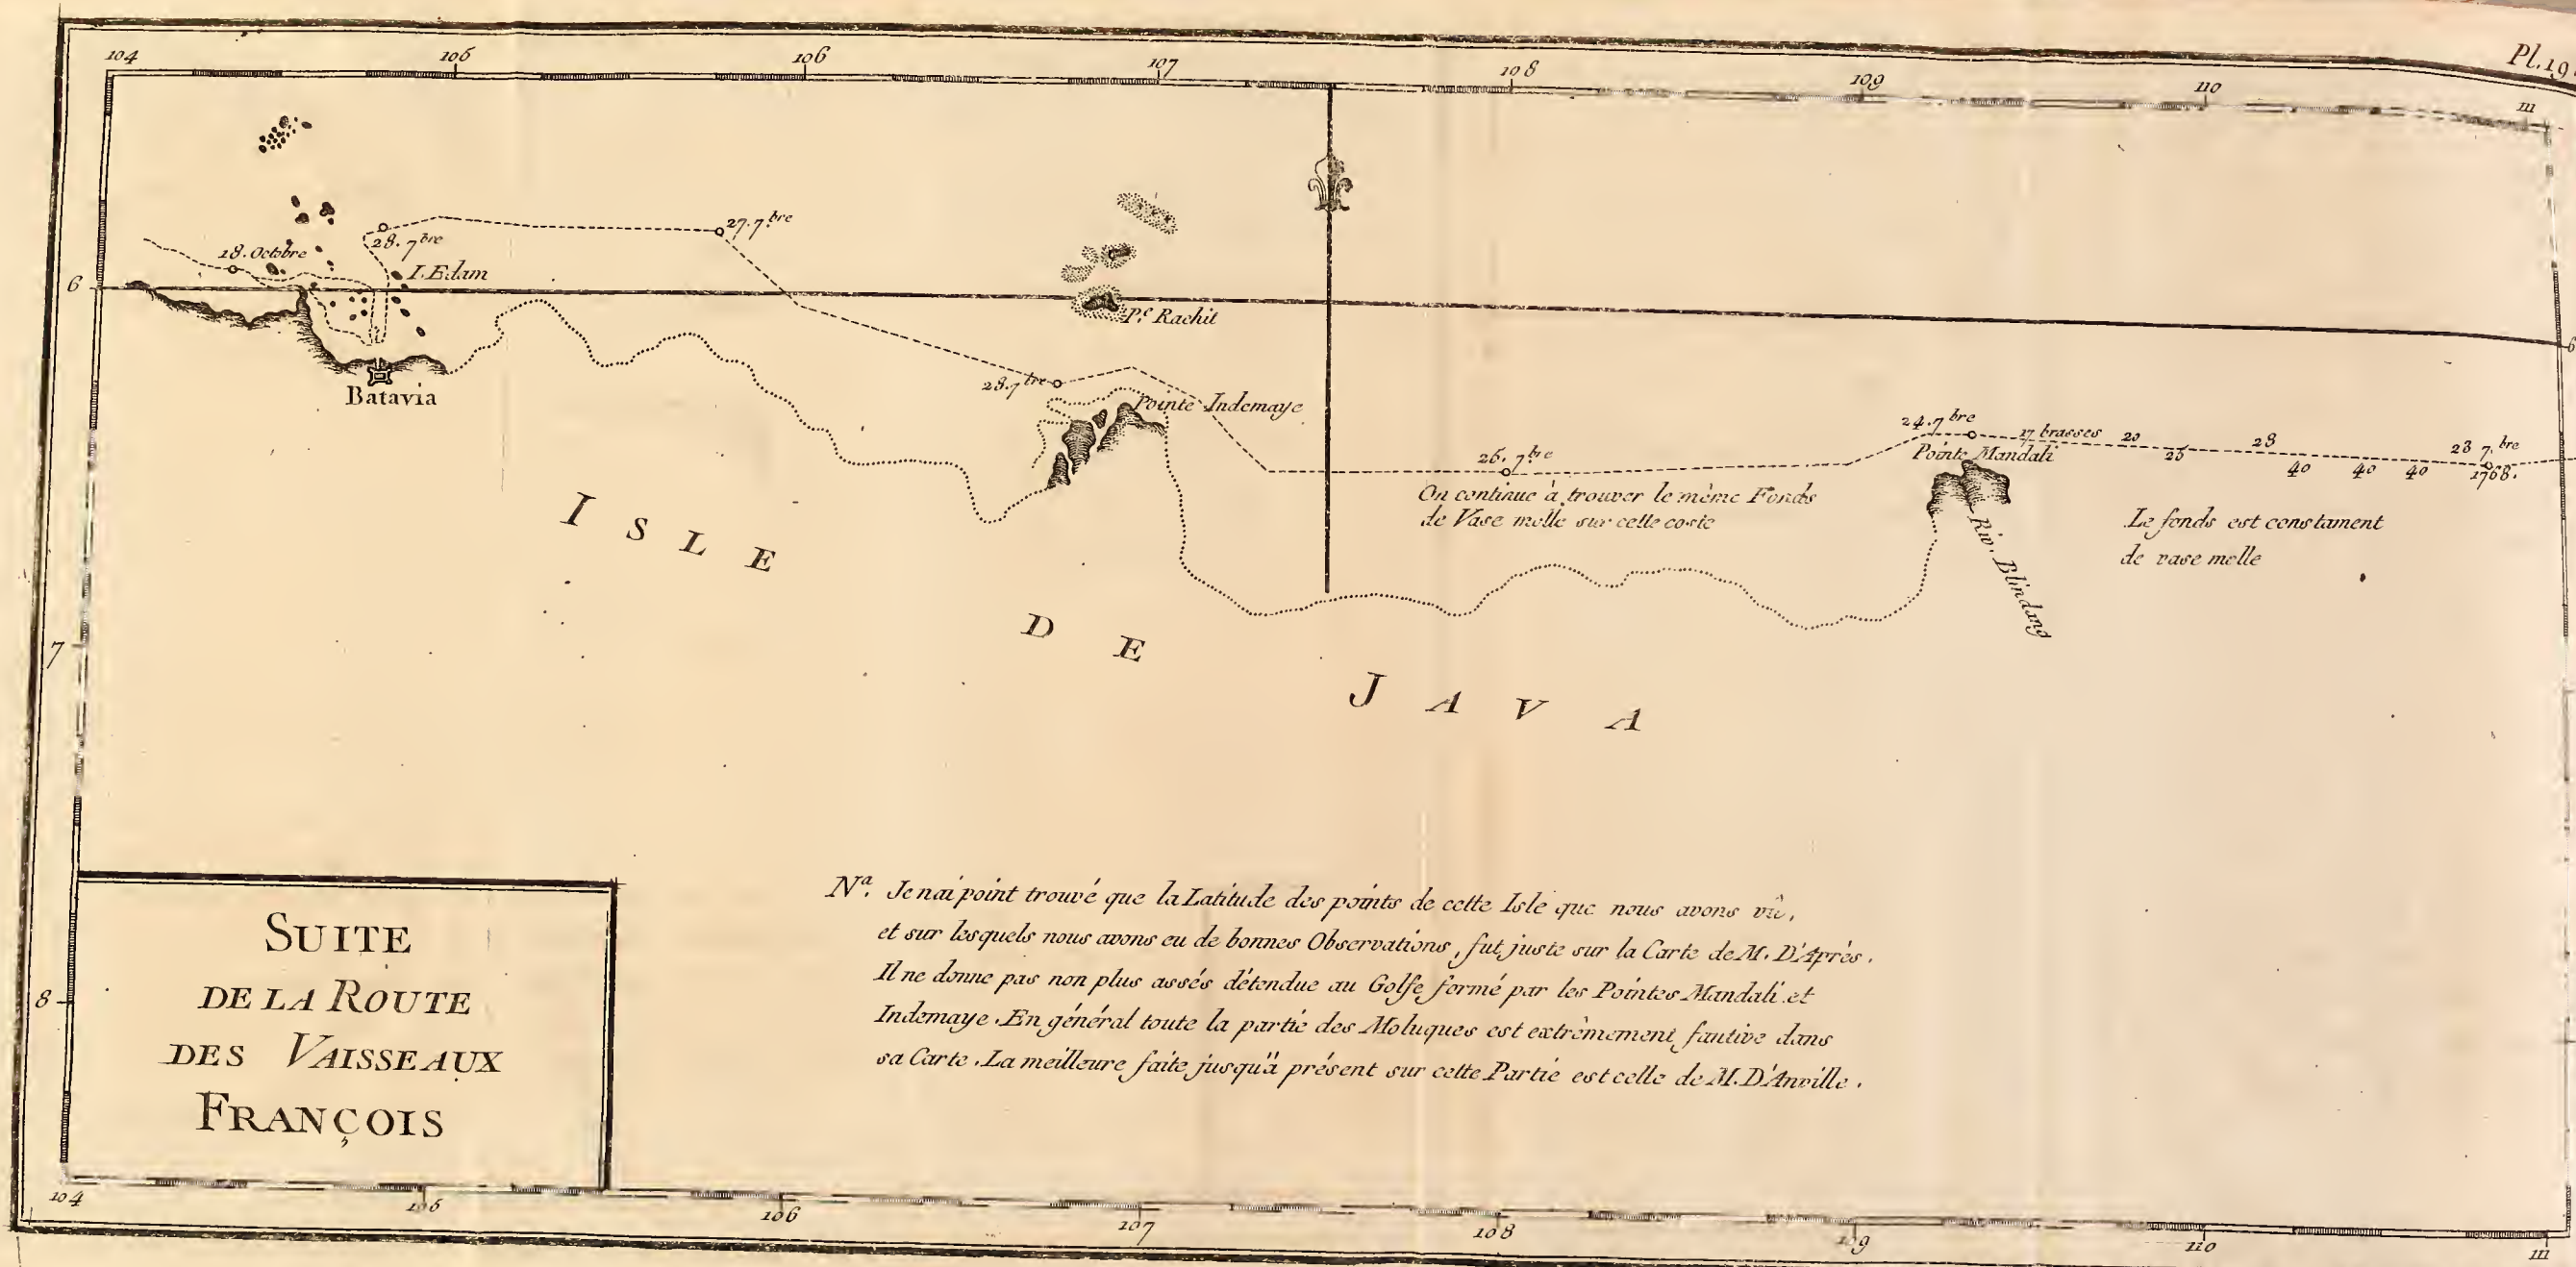 Pl. 19
104 105 106 107 108 109 110 111
18. Octobre
28. 7bre
27. 7bre
I. Edam
6
6
Pt. Rachit
Batavia
28. 7bre
Pointe Indemaye
24. 7bre
17 brasses 20 25 28 40 40 40
23 7.bre
1768.
Pointe Mandali
26. 7bre
On continue à trouver le même Fonds
de Vase molle sur cette coste
Le fonds est constament
de vase molle
Riv. Blindung
ISLE DE JAVA
7
8
Na. Je nai point trouvé que la Latitude des points de cette Isle que nous avons vû,
et sur lesquels nous avons eu de bonnes Observations, fut juste sur la Carte de M. D'Après.
Il ne donne pas non plus assés détendue au Golfe formé par les Pointes Mandali et
Indemaye. En général toute la partie des Moluques est extrêmement fautive dans
sa Carte. La meilleure faite jusqu'à présent sur cette Partie est celle de M. D'Anville.
SUITE
DE LA ROUTE
DES VAISSEAUX
FRANÇOIS
104 105 106 107 108 109 110 111